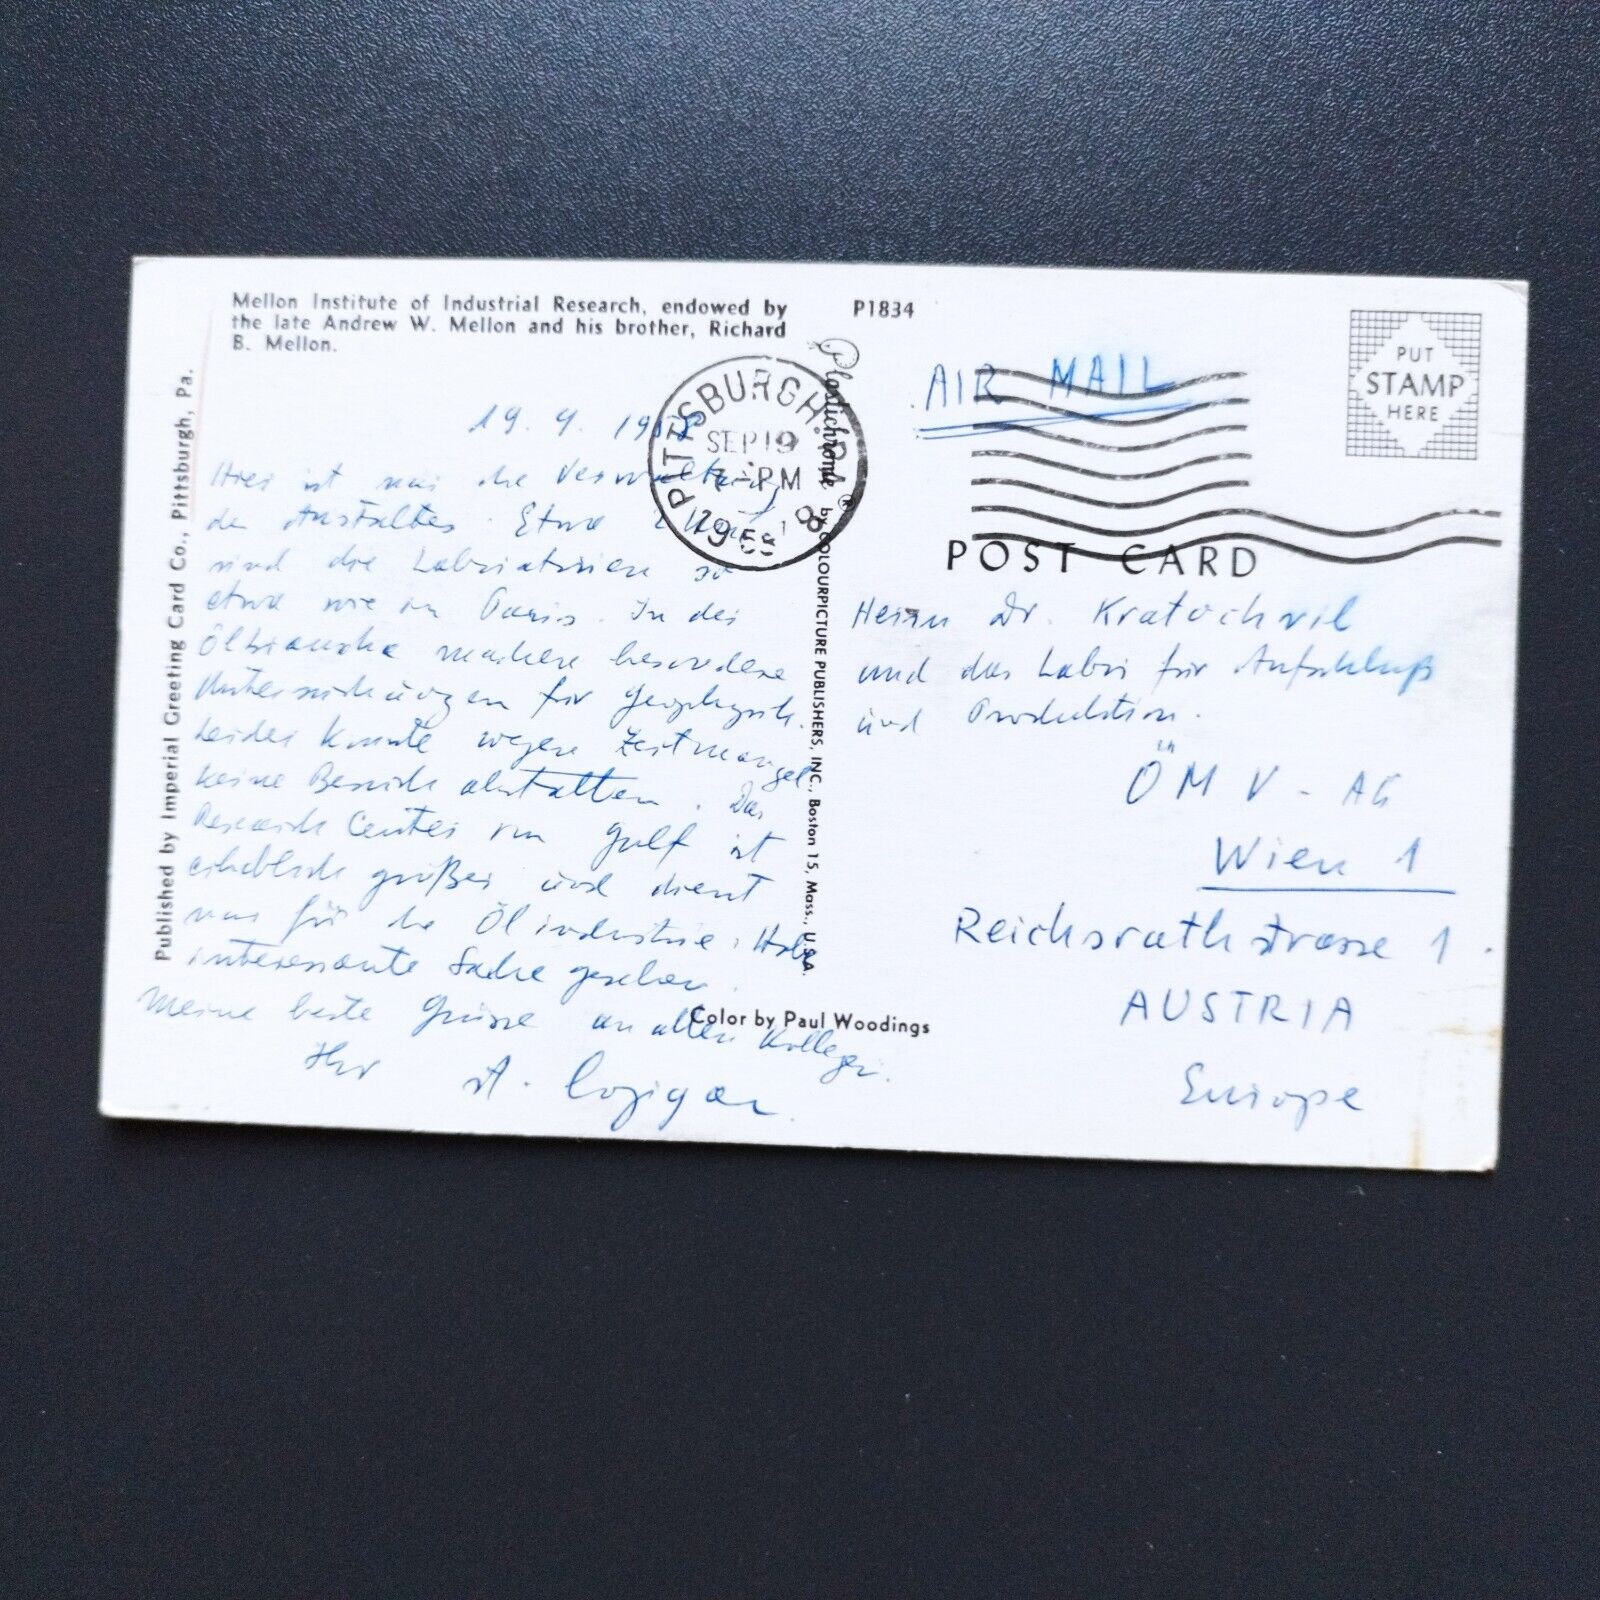 Mellon Institute of Industrial Research, endowed by
the late Andrew W. Mellon and his brother, Richard
B. Mellon.
P1834
PUT
STAMP
HERE
AIR MAIL
PITTSBURGH, PA.
SEP 19
PM
1958
19. 9. 1958
Hier ist nur die Verwaltung
der Anstalten. Etwa 2
sind die Laboratorien so
etwa wie in Paris. In der
Ölbranche machen besondere
Untersuchungen für Geophysik.
Leider konnte wegen Zeitmangel
keine Besuch abstatten. Das
Research Center von Gulf ist
erheblich größer und dient
nur für die Ölindustrie. Habe
interessante Sache gesehen.
Meine beste Grüsse an allen Kollegen.
Ihr A.
Published by Imperial Greeting Card Co., Pittsburgh, Pa.
Plastichrome ® by COLOURPICTURE PUBLISHERS, INC., Boston 15, Mass., U.S.A.
Color by Paul Woodings
POST CARD
Herrn Dr. Kratochvil
und das Labor für Aufschluß
und Produktion.
ÖMV - AG
Wien 1
Reichsrathstrasse 1.
AUSTRIA
Europe